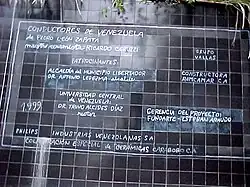 CONDUCTORES DE VENEZUELA
de PEDRO LEON ZAPATA
RICARDO
GRUPO
VALLAS
PATROCINANTES:
ALCALDIA del MUNICIPIO LIBERTADOR
Dr. ANTONIO LEDEZMA ALCALDE
CONSTRUCTORA
C.A
UNIVERSIDAD CENTRAL
de VENEZUELA:
Dr. TRINO ALCIDES DIAZ
RECTOR
1999
GERENCIA del PROYECTO:
FUNDARTE ESTEBAN ARAUJO
PHILIPS INDUSTRIAS VENEZOLANAS SA
COLABORACION ESPECIAL de CERAMICAS CARIBOBO C.A.